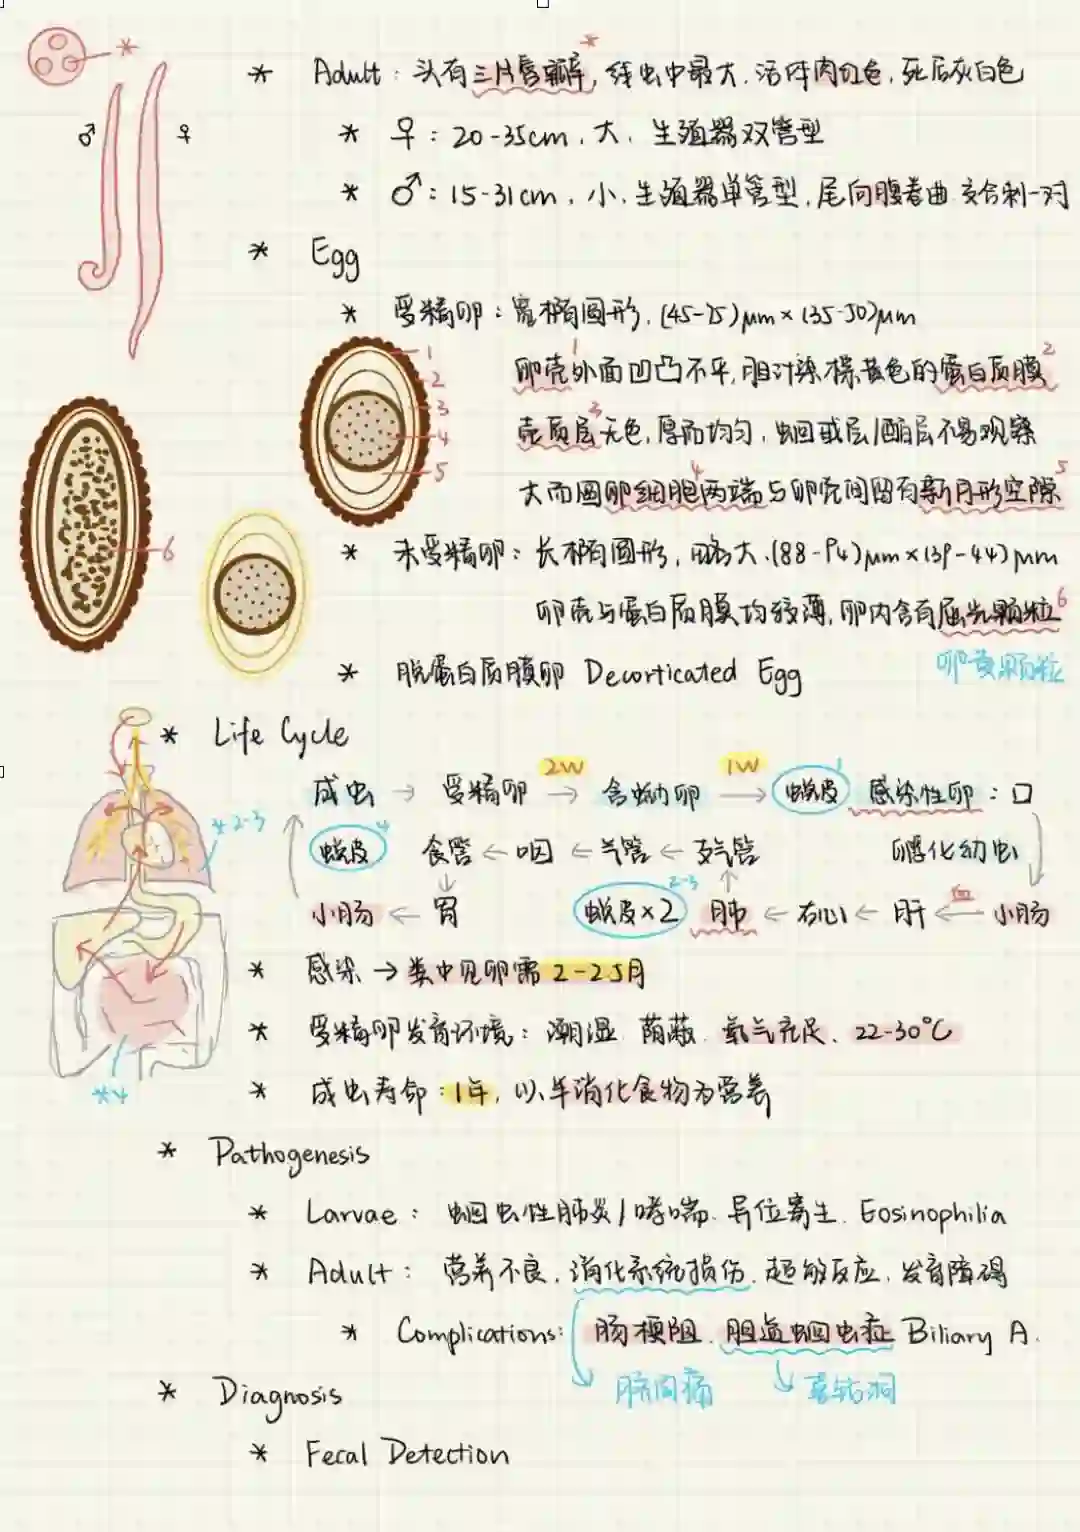 * Adult：头有三片唇瓣*，线虫中最大，活时肉红色，死后灰白色
♂ ♀
* ♀：20-35cm，大，生殖器双管型
* ♂：15-31cm，小，生殖器单管型，尾向腹卷曲 交合刺一对
* Egg
* 受精卵：宽椭圆形，(45-75)μm×(35-50)μm
卵壳1外面凹凸不平，胆汁染棕黄色的蛋白质膜2
壳质层3无色，厚而均匀，蛔甙层/酯层不易观察
大而圆卵细胞4两端与卵壳间留有新月形空隙5
1
2
3
4
5
6
* 未受精卵：长椭圆形，略大，(88-94)μm×(39-44)μm
卵壳与蛋白质膜均较薄，卵内含有屈光颗粒6
卵黄颗粒
* 脱蛋白质膜卵 Decorticated Egg
* Life Cycle
成虫 → 受精卵 2W→ 含蚴卵 1W→ 蜕皮1 感染性卵：口
*2-3
蜕皮4 食管 ← 咽 ← 气管 ← 支气管 孵化幼虫
小肠 ← 胃 蜕皮×2 2-3 肺 ← 右心 ← 肝 ←血 小肠
* 感染 → 粪中见卵需 2-2.5月
* 受精卵发育环境：潮湿、荫蔽、氧气充足、22-30℃
*4
* 成虫寿命：1年，以半消化食物为营养
* Pathogenesis
* Larvae：蛔虫性肺炎/哮喘、异位寄生、Eosinophilia
* Adult：营养不良，消化系统损伤，超敏反应，发育障碍
* Complications: 肠梗阻、胆道蛔虫症 Biliary A.
脐周痛 喜钻洞
* Diagnosis
* Fecal Detection